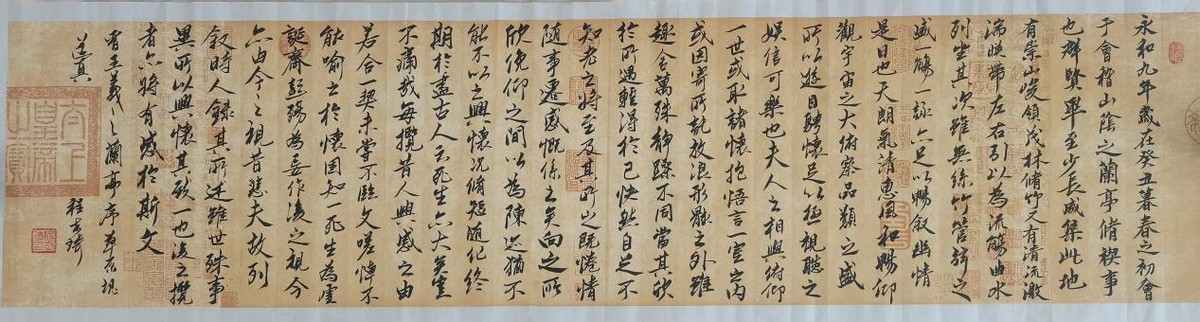 永和九年歲在癸丑暮春之初會
于會稽山陰之蘭亭脩禊事
也群賢畢至少長咸集此地
有崇山峻領茂林脩竹又有清流激
湍暎帶左右引以為流觴曲水
列坐其次雖無絲竹管弦之
盛一觴一詠亦足以暢敘幽情
是日也天朗氣清惠風和暢仰
觀宇宙之大俯察品類之盛
所以遊目騁懷足以極視聽之
娛信可樂也夫人之相與俯仰
一世或取諸懷抱悟言一室之內
或因寄所託放浪形骸之外雖
趣舍萬殊靜躁不同當其欣
於所遇輕得於己快然自足不
知老之將至及其所之既惓情
隨事遷感慨係之矣向之所
欣俛仰之間以為陳迹猶不
能不以之興懷況脩短隨化終
期於盡古人云死生亦大矣豈
不痛哉每攬昔人興感之由
若合一契未嘗不臨文嗟悼不
能喻之於懷固知一死生為虛
誕齊彭殤為妄作後之視今
亦由今之視昔悲夫故列
敘時人錄其所述雖世殊事
異所以興懷其致一也後之攬
者亦將有感於斯文
王羲之蘭亭序
太上皇帝之寶